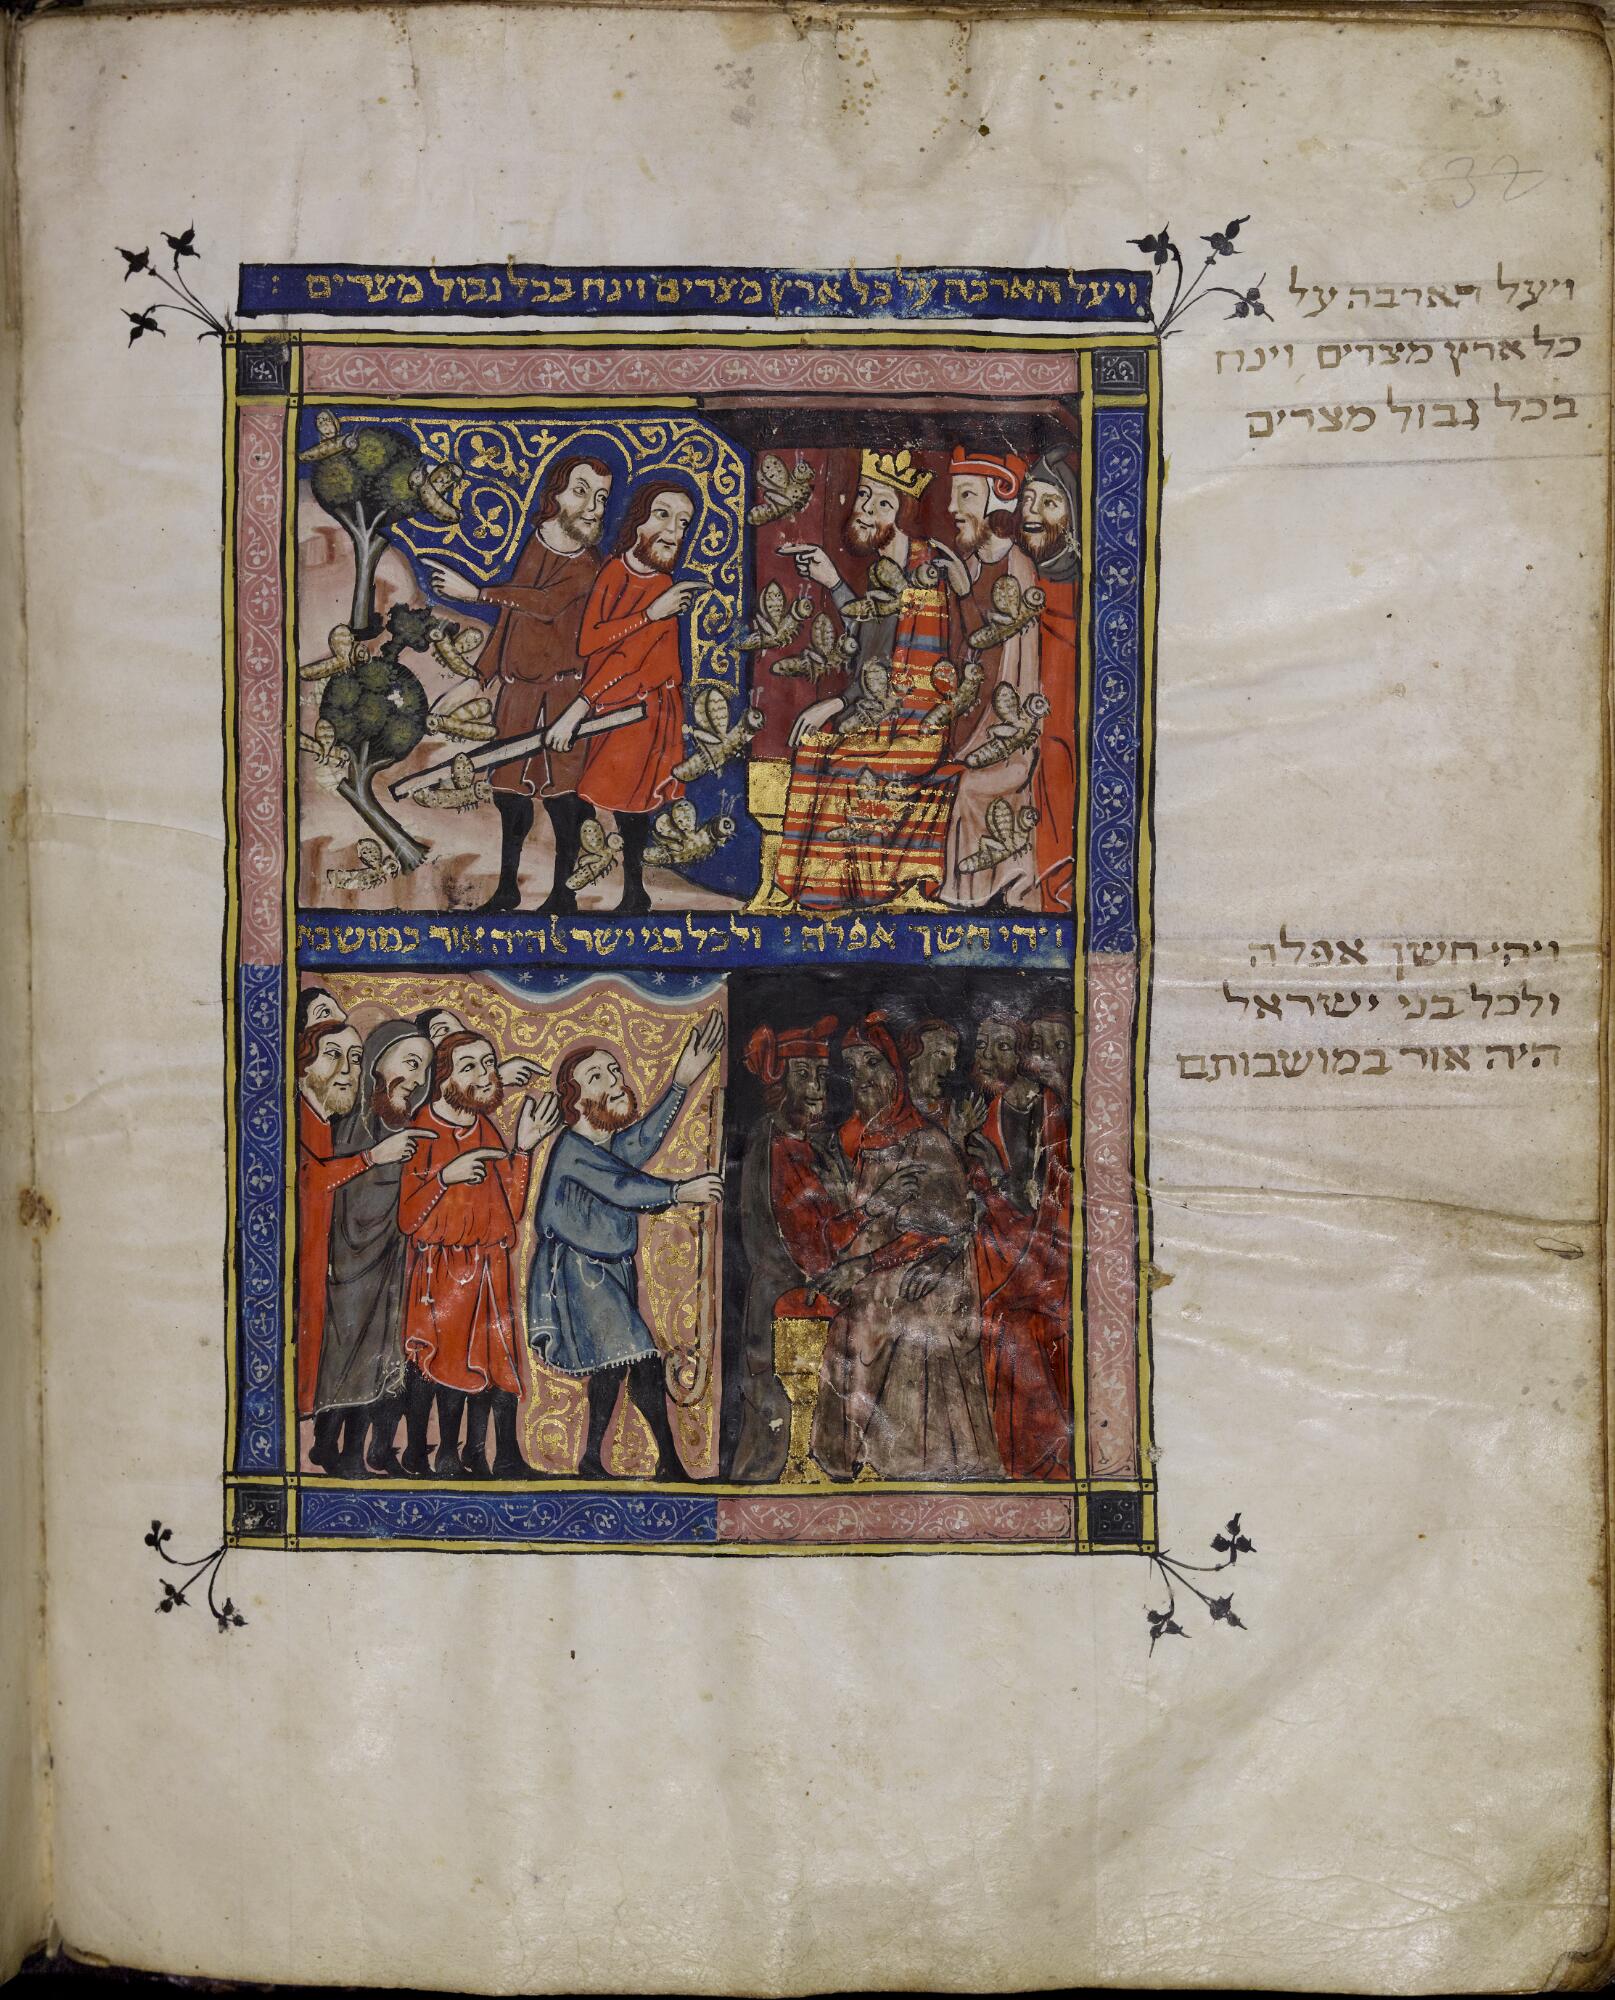 ויעל הארבה על כל ארץ מצרים וינח בכל גבול מצרים :
ויהי חשך אפלה : ולכל בני ישראל היה אור במושבת
ויעל הארבה על
כל ארץ מצרים וינח
בכל גבול מצרים
ויהי חשך אפלה
ולכל בני ישראל
היה אור במושבותם
32